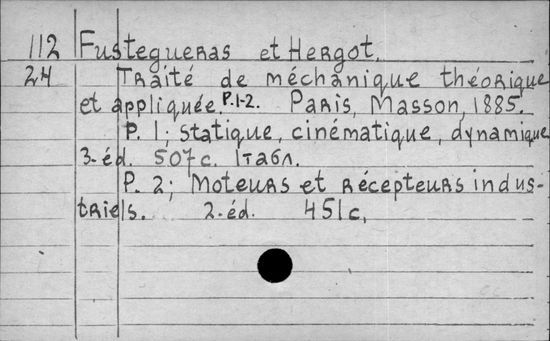 112 Fustegueras et Hergot.
24 Traité de méchanique théorique
et appliquée. P.1-2. Paris, Masson, 1885.
P. 1; statique, cinématique, dynamique
3-éd. 507 с. 1 табл.
P. 2; Moteurs et récepteurs indus-
triels. 2-éd. 451 с.